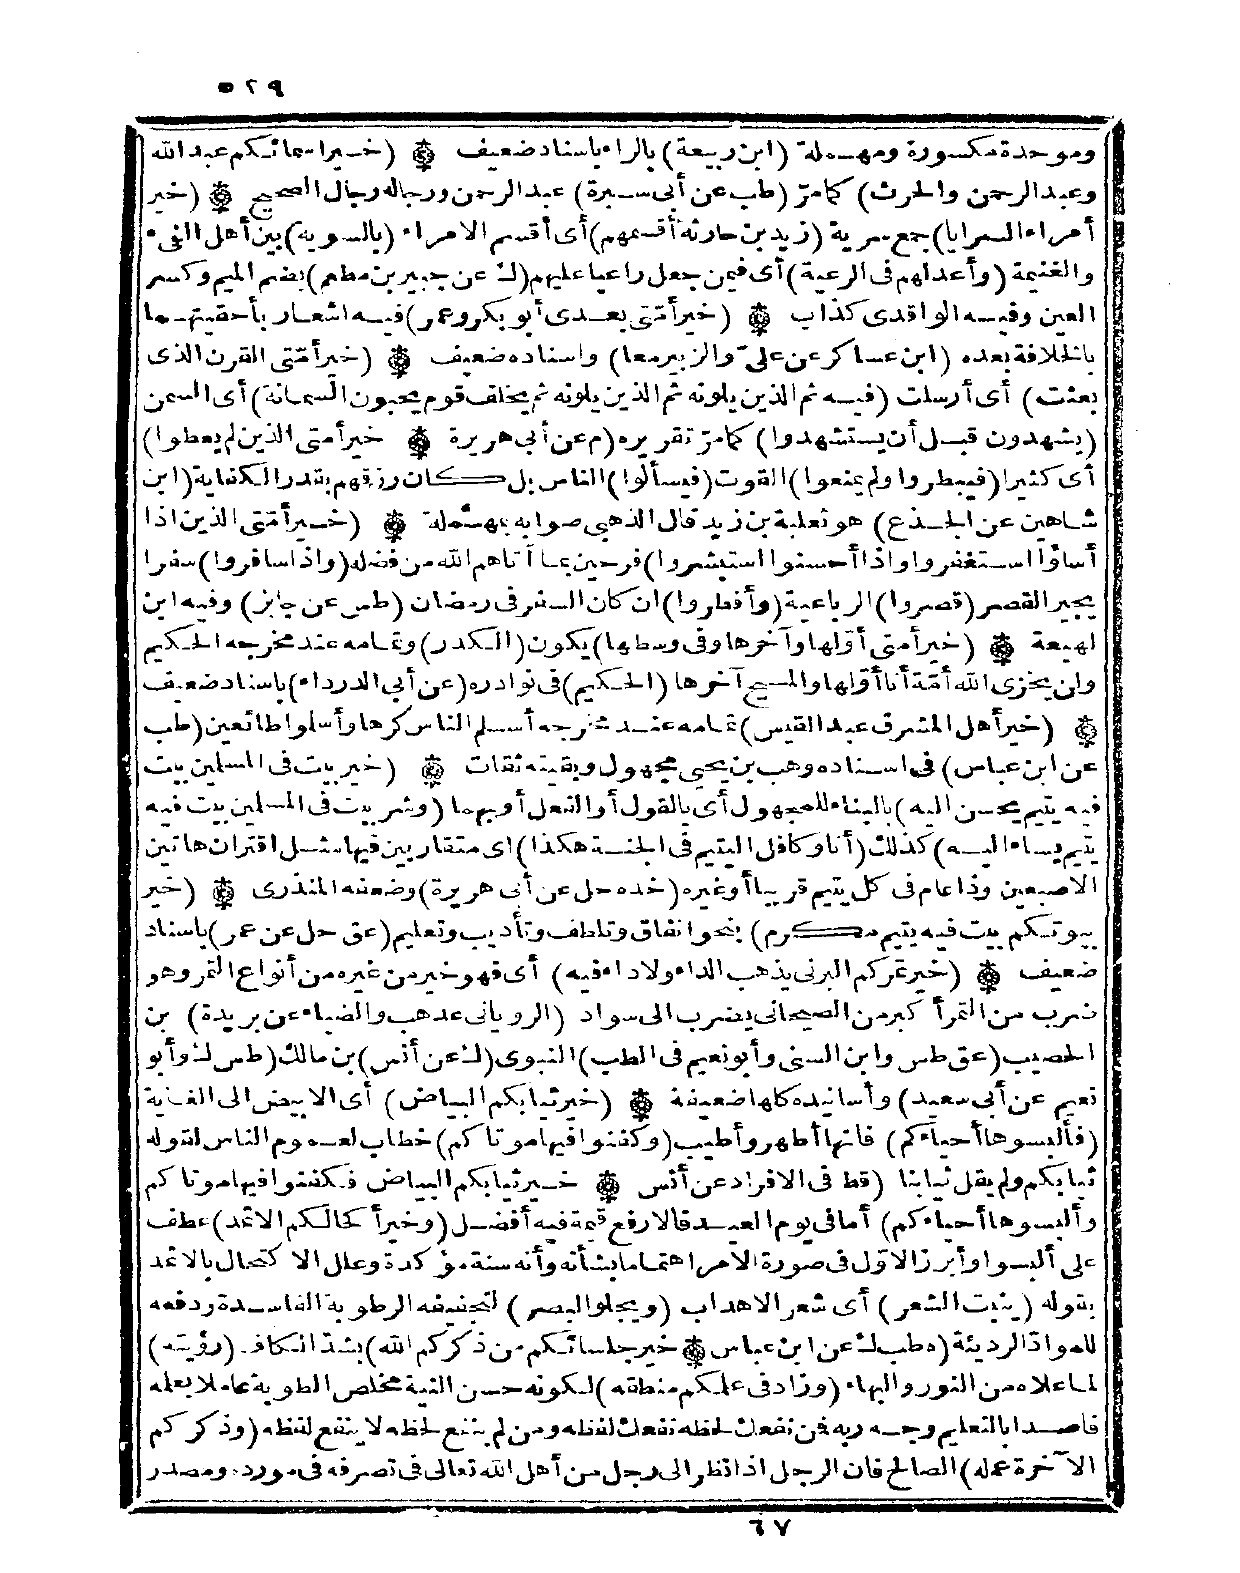 ٥٢٩
وموحدة مكسورة ومهملة (ابن ربيعة) بالراء باسناد ضعيف ۞ (خير اسمائكم عبد الله
وعبد الرحمن والحرث) كما مرّ (طب عن أبي سبرة) عبد الرحمن ورجاله رجال الصحيح ۞ (خير
أمراء السرايا) جمع سرية (زيد بن حارثة أقسمهم) أى أقسم الامراء (بالسوية) بين أهل الفىء
والغنيمة (وأعدلهم فى الرعية) أى فيمن جعل راعيا عليهم (ك عن جبير بن مطعم) بضم الميم وكسر
العين وفيه الواقدى كذاب ۞ (خير أمّتى بعدى أبو بكر وعمر) فيه اشعار بأحقيتهما
بالخلافة بعده (ابن عساكر عن على والزبير معا) واسناده ضعيف ۞ (خير أمّتى القرن الذى
بعثت) أى أرسلت (فيه ثم الذين يلونه ثم الذين يلونه ثم يخلف قوم يحبون السمانة) أى السمن
(يشهدون قبل أن يستشهدوا) كما مرّ تقريره (م عن أبى هريرة ۞ خير أمتى الذين لم يعطوا)
أى كثيرا (فيبطروا ولم يمنعوا) القوت (فيسألوا) الناس بل كان رزقهم بقدر الكفاية (ابن
شاهين عن الجذع) هو ثعلبة بن زيد قال الذهبى صوابه بمهملة ۞ (خير أمّتى الذين اذا
أساؤا استغفروا واذا أحسنوا استبشروا) فرحين بما آتاهم الله من فضله (واذا سافروا) سفرا
يجيز القصر (قصروا) الرباعية (وأفطروا) ان كان السفر فى رمضان (طس عن جابر) وفيه ابن
لهيعة ۞ (خير أمتى أوّلها وآخرها وفى وسطها) يكون (الكدر) وتمامه عند مخرجه الحكيم
ولن يخزى الله أمّة أنا أوّلها والمسيح آخرها (الحكيم) فى نوادره (عن أبى الدرداء) باسناد ضعيف
۞ (خير أهل المشرق عبد القيس) تمامه عند مخرجه أسلم الناس كرها وأسلموا طائعين (طب
عن ابن عباس) فى اسناده وهب بن يحيى مجهول وبقيته ثقات ۞ (خير بيت فى المسلمين بيت
فيه يتيم يحسن اليه) بالبناء للمجهول أى بالقول أو الفعل أو بهما (وشر بيت فى المسلمين بيت فيه
يتيم يساء اليه) كذلك (أنا وكافل اليتيم فى الجنة هكذا) اى متقاربين فيها مثل اقتران هاتين
الاصبعين وذا عام فى كل يتيم قريبا أوغيره (خد ه حل عن أبى هريرة) وضعفه المنذرى ۞ (خير
بيوتكم بيت فيه يتيم مكرم) بنحو انفاق وتلطف وتأديب وتعليم (عق حل عن عمر) باسناد
ضعيف ۞ (خير تمركم البرنى يذهب الداء ولا داء فيه) أى فهو خير من غيره من أنواع التمر وهو
ضرب من التمر أكبر من الصيحانى يضرب الى سواد (الرويانى عد هب والضياء عن بريدة) بن
الحصيب (عق طس وابن السنى وأبو نعيم فى الطب) النبوى (ك عن أنس) بن مالك (طس ك وأبو
نعيم عن أبى سعيد) وأسانيده كلها ضعيفة ۞ (خير ثيابكم البياض) أى الابيض الى الغاية
(فألبسوها أحياءكم) فانها أطهر وأطيب (وكفنوا فيها موتاكم) خطاب لعموم الناس لقوله
ثيابكم ولم يقل ثيابنا (قط فى الافراد عن أنس ۞ خير ثيابكم البياض فكفنوا فيها موتاكم
وألبسوها أحياءكم) أما فى يوم العيد فالارفع قيمة فيه أفضل (وخير أكحالكم الاثمد) عطف
على ألبسوا وأبرز الاوّل فى صورة الامر اهتماما بشأنه وأنه سنة مؤكدة وعلل الاكتحال بالاثمد
بقوله (ينبت الشعر) أى شعر الاهداب (ويجلو البصر) لتجفيفه الرطوبة الفاسدة ودفعه
للموادّ الرديئة (ه طب ك عن ابن عباس ۞ خير جلسائكم من ذكركم الله) بشدّ الكاف (رؤيته)
لما علاه من النور والبهاء (وزاد فى علمكم منطقه) لكونه حسن النية مخلص الطوية عاملا بعلمه
قاصدا بالتعليم وجه ربه فمن نفعك لحظه نفعك لفظه ومن لم ينفع لحظه لا ينفع لفظه (وذكركم
الآخرة عمله) الصالح فان الرجل اذا نظر الى رجل من أهل الله تعالى فى تصرفه فى مورده ومصدر
٦٧